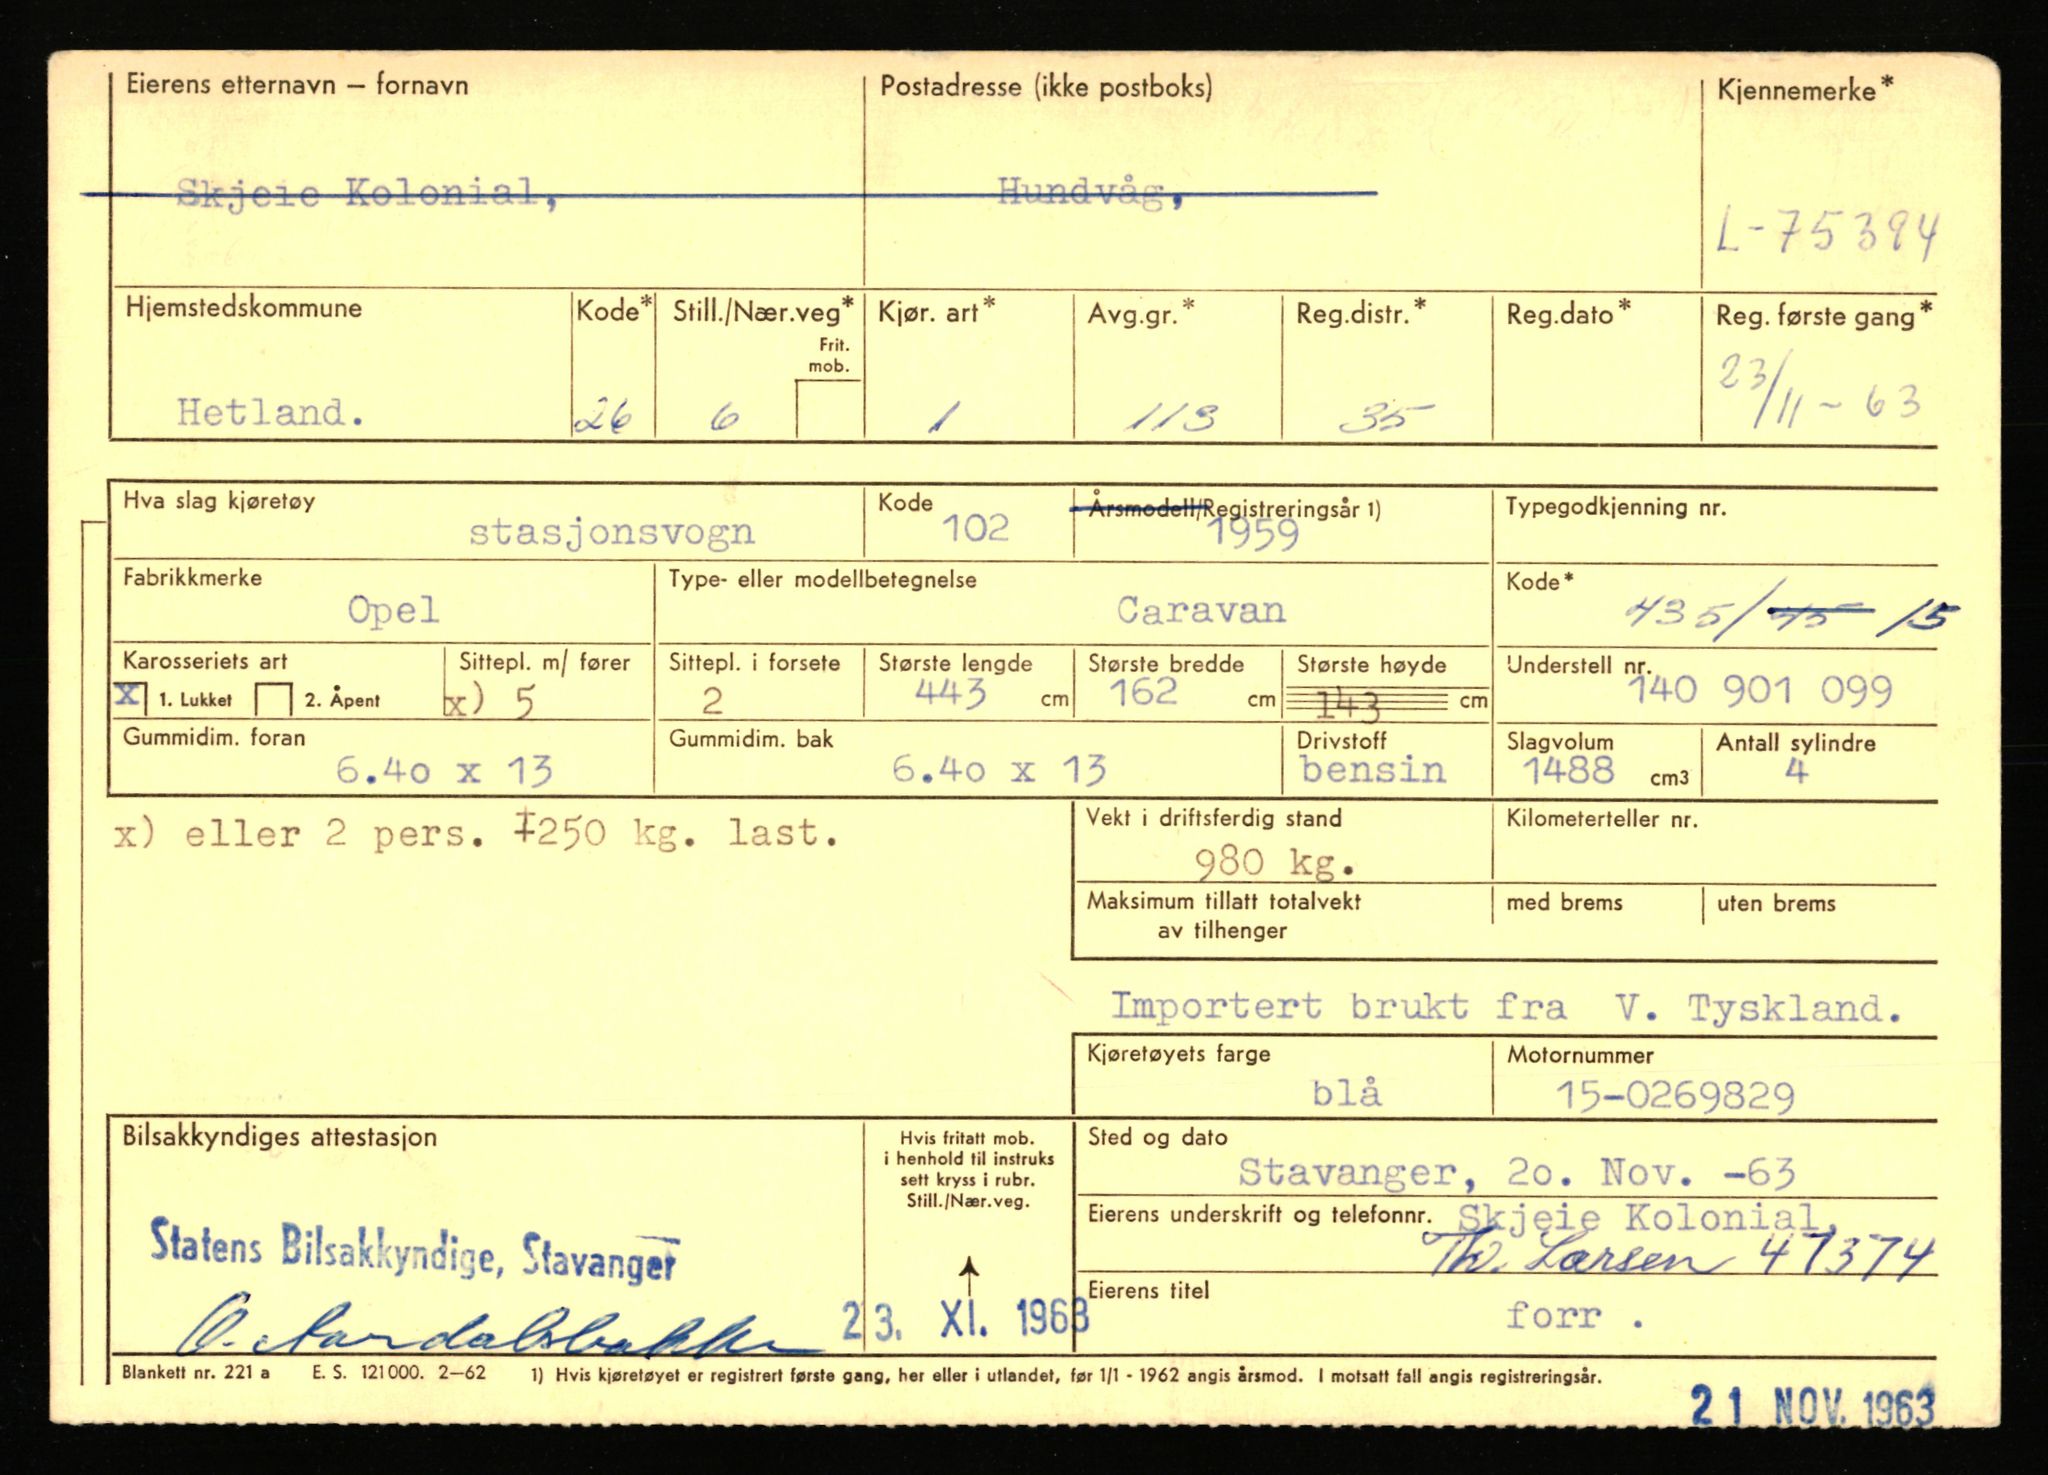 Eierens etternavn — fornavn Postadresse (ikke postboks) Kjennemerke*
Skjeie Kolonial, Hundvåg,
L-75394
Hjemstedskommune Kode* Still./Nær.veg* Kjør. art* Avg.gr.* Reg.distr.* Reg.dato* Reg. første gang*
Frit.
mob.
Hetland. 26 6 1 113 35 23/11-63
Hva slag kjøretøy Kode Årsmodell/Registreringsår 1) Typegodkjenning nr.
stasjonsvogn 102 1959
Fabrikkmerke Type- eller modellbetegnelse Kode*
Opel Caravan 435/45 15
Karosseriets art Sittepl. m/ fører Sittepl. i forsete Største lengde Største bredde Største høyde Understell nr.
x 1. Lukket 2. Åpent x) 5 2 443 cm 162 cm 143 cm 140 901 099
Gummidim. foran Gummidim. bak Drivstoff Slagvolum Antall sylindre
6.40 x 13 6.40 x 13 bensin 1488 cm3 4
x) eller 2 pers. +250 kg. last.
Vekt i driftsferdig stand Kilometerteller nr.
980 kg.
Maksimum tillatt totalvekt med brems uten brems
av tilhenger
Importert brukt fra V. Tyskland.
Kjøretøyets farge Motornummer
blå 15-0269829
Bilsakkyndiges attestasjon Hvis fritatt mob.
i henhold til instruks
sett kryss i rubr.
Still./Nær.veg.
Sted og dato
Stavanger, 20. Nov. -63
Eierens underskrift og telefonnr. Skjeie Kolonial,
Th. Larsen 47374
Statens Bilsakkyndige, Stavanger
O. Aardalsbakke 23. XI. 1963
Eierens titel
forr .
Blankett nr. 221 a E. S. 121000. 2—62 1) Hvis kjøretøyet er registrert første gang, her eller i utlandet, før 1/1 - 1962 angis årsmod. I motsatt fall angis registreringsår.
21 NOV. 1963